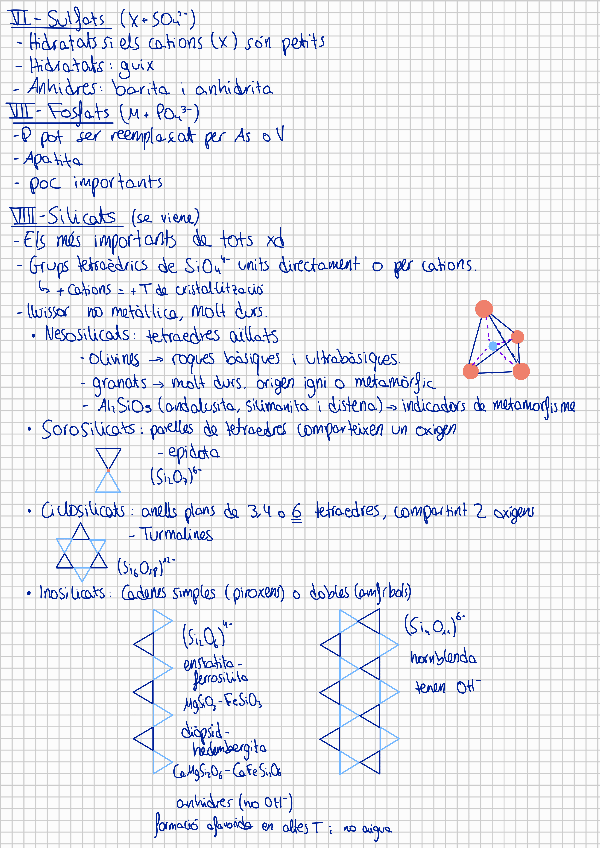 VI - Sulfats (X + SO₄²⁻)
- Hidratats si els cations (X) són petits
- Hidratats: guix
- Anhidres: barita i anhidrita
VII - Fosfats (M + PO₄³⁻)
- P pot ser reemplaçat per As o V
- Apatita
- poc importants
VIII - Silicats (se viene)
- Els més importants de tots xd
- Grups tetraèdrics de SiO₄⁴⁻ units directament o per cations.
↳ + cations = + T de cristal·lització
- Lluïssor no metàl·lica, molt durs.
• Nesosilicats: tetraedres aïllats
- olivines → roques bàsiques i ultrabàsiques.
- granats → molt durs. origen igni o metamòrfic
- Al₂SiO₅ (andalusita, silimanita i distena) → indicadors de metamorfisme
• Sorosilicats: parelles de tetraedres comparteixen un oxigen
- epidota
(Si₂O₇)⁶⁻
• Ciclosilicats: anells plans de 3, 4 o 6 tetraedres, compartint 2 oxigens
- Turmalines
(Si₆O₁₈)¹²⁻
• Inosilicats: Cadenes simples (piroxens) o dobles (amfíbols)
(Si₂O₆)⁴⁻
enstatita -
ferrosilita
MgSiO₃ - FeSiO₃
diòpsid -
hedembergita
CaMgSi₂O₆ - CaFeSi₂O₆
anhidres (no OH⁻)
formació afavorida en altes T i no aigua
(Si₄O₁₁)⁶⁻
hornblenda
tenen OH⁻